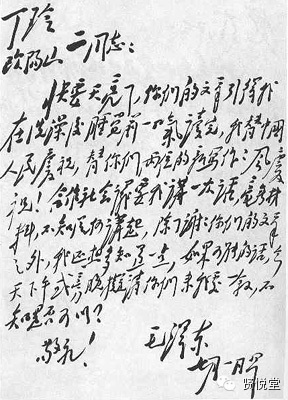 丁玲
欧阳山 二同志：
快要天亮了，你们的文章引得我
在洗澡后睡觉前一口气读完，我替中国
人民庆祝，替你们两位的新写作作风庆
祝！合作社会议要我讲一次话，毫无材
料，不知从何讲起，除了谢谢你们的文章
之外，我还想多知道一点，如果可能的话，今
天下午或傍晚拟请你们来我处一叙，不
知是否可以？
敬礼！
毛泽东
七月一日早
贤悦堂